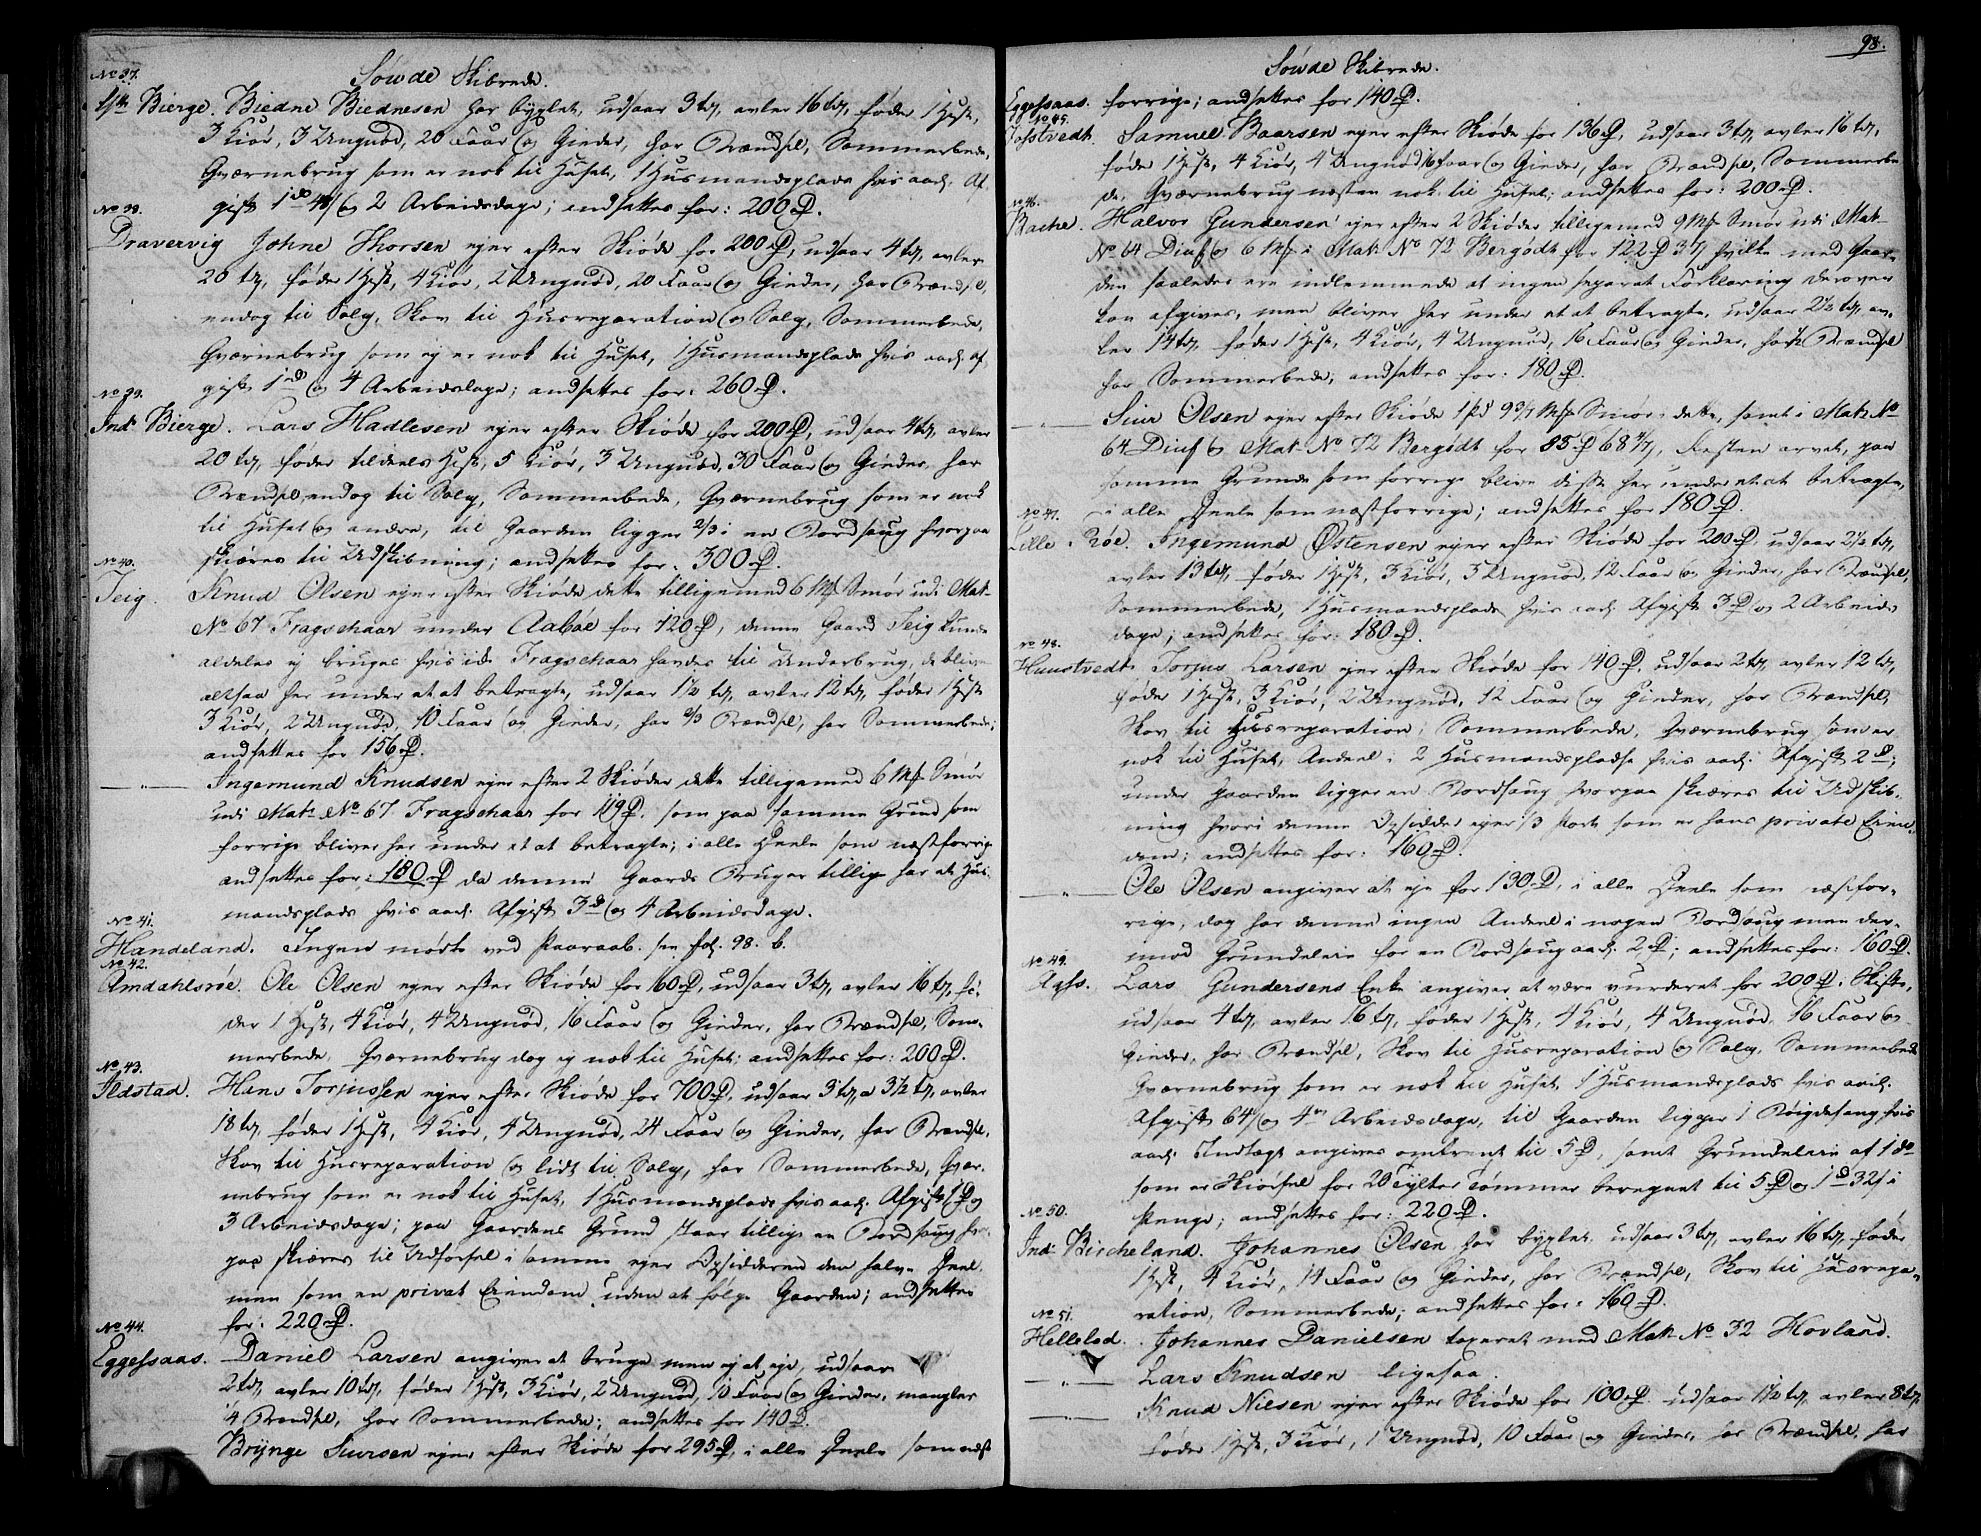 Søwde Skibrede.
No 37.
Bierge. Biedne Biednesen har bygslet, udsaar 3 td, avler 16 td, føder 1 Hest,
3 Kiør, 3 Ungnød, 20 Faar og Gieder, har Brændsel, Sommerbede,
Qværnebrug som er nok til Huset, 1 Husmandsplads hvis aarl. Af-
gift og 2 Arbeidsdage; ansættes for: 200 D.
No 38.
Dravervig Johne Thorsen ejer efter Skiøde for 200 D, udsaar 4 td, avler
20 td, føder 1 Hest, 4 Kiør, 2 Ungnød, 20 Faar og Gieder, har Brændsel,
endog til Salg, Skov til Husreparation og Salg, Sommerbede,
Qværnebrug som ej er nok til Huset, 1 Husmandsplads hvis aarl. af-
gift 1 D og 4 Arbeidsdage; andsættes for: 260 D.
No 39.
Ind: Bierge. Lars Hadlesen ejer efter Skiøde for 200 D, udsaar 4 td, avler
20 td, føder tildeels Hest, 5 Kiør, 3 Ungnød, 30 Faar og Gieder, har
Brændsel endog til Salg, Sommerbede, Qværnebrug som er nok
til Huset og andre, til Gaarden ligger 2/3 i en Bordsaug hvorpaa
skiæres til Udskibning; andsættes for: 300 D.
No 40.
Teig. Knud Olsen ejer efter Skiøde dette tilligemed 6 Mk Smør udi Mat:
No 67 Fragschaar under Aabøe for 120 D, denne Gaard Teig kunde
aldeles ej bruges hvis ide Fragschaar havdes til Underbrug, de bliver
altsaa her under et at betragte, udsaar 1½ td, avler 12 td, føder 1 Hest
3 Kiør, 2 Ungnød, 10 Faar og Gieder, har 2/3 Brændsel, har Sommerbede;
andsættes for 156 D.
— „ — Ingemund Knudsen ejer efter 2 Skiøder dette tilligemed 6 Mk Smør
udi Mat: No 67 Fragschaar for 119 D. som paa samme Grund som
forrige bliver her under et at betragte; i alle Deele som næstforrige
andsættes for: 180 D da denne Gaards Bruger tillige har et Hus-
mandsplads hvis aarl. Afgift 3 D og 4 Arbeidsdage.
No 41.
Handeland. Ingen mødte ved Paaraab. see fol. 98. b.
No 42.
Amdahlsrøe. Ole Olsen ejer efter Skiøde for 160 D, udsaar 3 td, avler 16 td, fø-
der 1 Hest, 4 Kiør, 4 Ungnød, 16 Faar og Gieder, har Brændsel, Som-
merbede, Qværnebrug dog ej nok til Huset; andsættes for: 200 D.
No 43.
Ildstad. Hans Torjussen ejer efter Skiøde for 700 D, udsaar 3 td a 3½ td, avler
18 td, føder 1 Hest, 4 Kiør, 4 Ungnød, 24 Faar og Gieder, har Brændsel,
Skov til Husreparation og lidt til Salg, har Sommerbede, Qvær-
nebrug som er nok til Huset, 1 Husmandsplads hvis aarl. Afgift 1 D og
3 Arbeidsdage; paa Gaardens Grund staar tillige en Bordsaug hvor-
paa skiæres til Udførsel i samme ejer Opsidderen den halve Deel
men som en privat Eiendom uden at følge Gaarden; andsættes
for: 220 D.
No 44.
Eggessaas. Daniel Larsen angiver at bruge men ej at eje, udsaar
2 td, avler 10 td, føder 1 Hest, 3 Kiør, 2 Ungnød, 10 Faar og Gieder, mangler
Brændsel, har Sommerbede; andsættes for 140 D.
Brÿnge Siursen ejer efter Skiøde for 295 D, i alle Deele som næst
98.
Søwde Skibrede.
Eggessaas. forrige; andsættes for 140 D.
No 45.
Tofstvedt. Samuel Baarsen ejer efter Skiøde for 136 D, udsaar 3 td, avler 16 td,
føder 1 Hest, 4 Kiør, 4 Ungnød 16 Faar og Gieder, har Brændsel, Sommerbe-
de, Qværnebrug næsten nok til Huset; andsættes for: 200 D.
No 46.
Bache. Halvor Gundersen ejer efter 2 Skiøder tilligemed 9 Mk Smør udi Mat-
No 64 Diuf og 6 Mk i Mat: No 72 Bergødt for 122 D hvilke med Gaar-
den saaledes ere indlemmede at ingen separat Forklaring derover
kan afgives, men bliver her under et at betragte. udsaar 2½ td, av-
ler 14 td, føder 1 Hest, 4 Kiør, 4 Ungnød, 16 Faar og Gieder, Brændsel
har Sommerbede; andsættes for: 180 D.
— „ — Siur Olsen ejer efter Skiøde Smør i dette, samt i Mat: No
64 Diuf og Mat: No 72 Bergødt for 85 D 68, Resten arvet, paa
samme Grunde som forrige blive disse her under et at betragte,
i alle Deele som næstforrige; andsættes for 180 D.
No 47.
Lille-Røe. Ingemund Østensen ejer efter Skiøde for 200 D. udsaar 2½ td,
avler 13 td, føder 1 Hest, 3 Kiør, 3 Ungnød, 12 Faar og Gieder, har Brændsel,
Sommerbede, 1 Husmandsplads hvis aarl. Afgift 3 D og 2 Arbeids-
dage; andsættes for: 180 D.
No 48.
Huustvedt. Torjus Larsen ejer efter Skiøde for 140 D, udsaar 2 td, avler 12 td,
føder 1 Hest, 3 Kiør, 2 Ungnød, 12 Faar og Gieder, har Brændsel,
Skov til Husreparation, Sommerbede, Qværnebrug som er
nok til Huset, Andeel i 2 Husmandspladse hvis aarl. Afgift 2 D;
under Gaarden ligger en Bordsaug hvorpaa skiæres til Udskib-
ning hvori denne Opsidder ejer 1/3 Part som er hans private Eien-
dom; andsættes for: 160 D.
— „ — Ole Olsen angiver at eje for 130 D, i alle Deele som næstfor-
rige, dog har denne ingen Andeel i nogen Bordsaug men der-
imod Grundeleie for en Bordsaug aarl. 2 D; andsættes for: 160 D.
No 49.
Aass. Lars Gundersens Enke angiver at være vurderet for 200 D. i Skifte,
udsaar 4 td, avler 16 td, føder 1 Hest, 4 Kiør, 4 Ungnød, 16 Faar og
Gieder, har Brændsel, Skov til Husreparation og Salg, Sommerbede
Qværnebrug som er nok til Huset, 1 Husmandsplads hvis aarl.
Afgift 64 og 4 Arbeidsdage, til Gaarden ligger 1 hvis
aarl. Indtægt angives omtrent til 5 D, samt Grundeleie af 1
som er Kiørsel for 20 Tylter Tømmer beregnet til 5 D og 1 D 32 i
Penge; andsættes for: 220 D.
No 50.
Ind: Bircheland. Johannes Olsen har bygslet. udsaar 3 td, avler 16 td, føder
1 Hest, 4 Kiør, 14 Faar og Gieder, har Brændsel, Skov til Husrepa-
ration, Sommerbede; andsættes for: 160 D.
No 51.
Hellelod. Johannes Danielsen taxeret med Mat: No 32 Hovland.
— „ — Lars Knudsen ligesaa.
— „ — Knud Nielsen ejer efter Skiøde for 100 D. udsaar 1½ td, avler 8 td,
føder 1 Hest, 3 Kiør, 1 Ungnød, 10 Faar og Gieder, har Brændsel, har